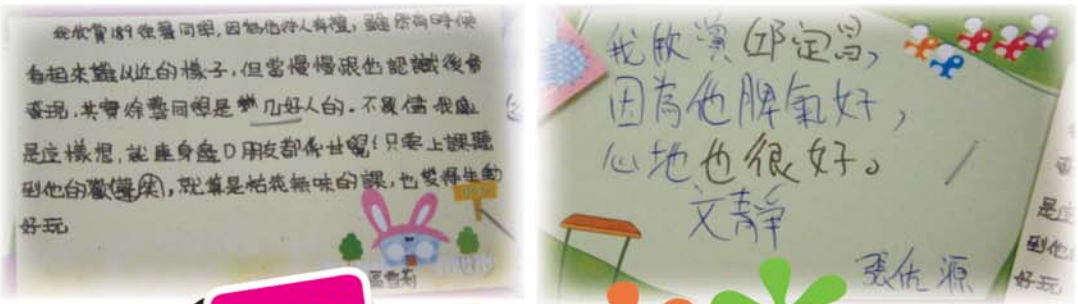 我欣賞189徐聲同學,因為他待人有禮,雖然有時候
看相來難以近的樣子,但當慢慢跟他認識後會
發現,其實徐聲同學是幾好人的。不單僅我處
是這樣想,就連身邊D朋友都係咁!只要上課聽
到他的歡聲笑,就算是枯燥無味的課,也變得生動
好玩
我欣賞邱定昌,
因為他脾氣好,
心地也很好。
文靜
張佐源
是這
到他
好玩